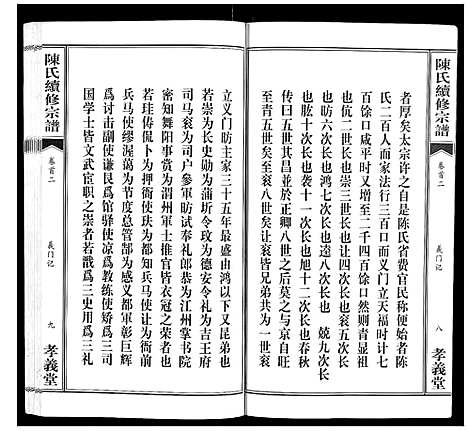 陳氏續修宗譜
卷首二
義门记
八
孝義堂
者厚矣太宗许之自是陈氏省费官民称便始者陈
氏二百人而家法行三百口而义门立天福时计七
百馀口咸平时又增至二千四百馀口然则青显祖
也伉二世长也崇三世长也让四次长也衮五次长
也昉六次长也鸿七次长也逵八次长也 兢九次长
也肱十次长也袭十一次长也旭十二次长也春秋
传曰五世其昌並於正卿八世之后莫之与京自旺
至青五世矣至衮八世矣让衮皆兄弟共为一世衮
立义门昉主家三十五年最盛由昉而下又昆弟也
若崇为长史勋为蒲圻令玫为德安令礼为吉王府
司马衮为司户參軍昉试奉礼郎恭为江州掌书院
密知舞阳事赏为渭州軍士推官皆衣冠之荣者也
若珪俦侃卜为教使玞为都知兵马使让为衙前
兵马使缪渥蔼为节度总管部为感义都軍彰巨辉
爲讨击副使谦爲馆驿使凉爲教练使矫爲三司
国学士皆文武宦职之崇者若戬爲三史用爲三礼
陳氏續修宗譜
卷首二
義门记
九
孝義堂